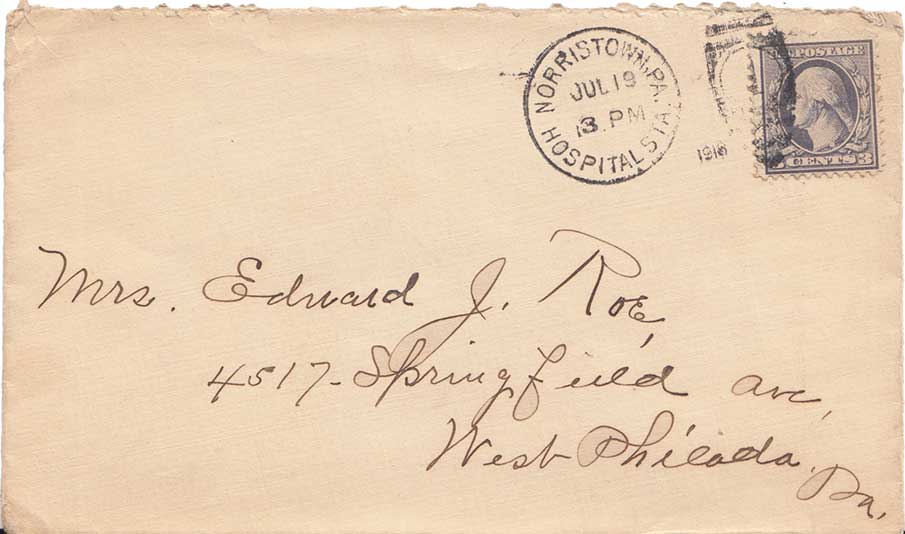 NORRISTOWN, PA.
JUL 19
3 PM
HOSPITAL STA.
POSTAGE
CENTS 3
Mrs. Edward J. Roe,
4517- Springfield ave,
West Philada.
Pa.